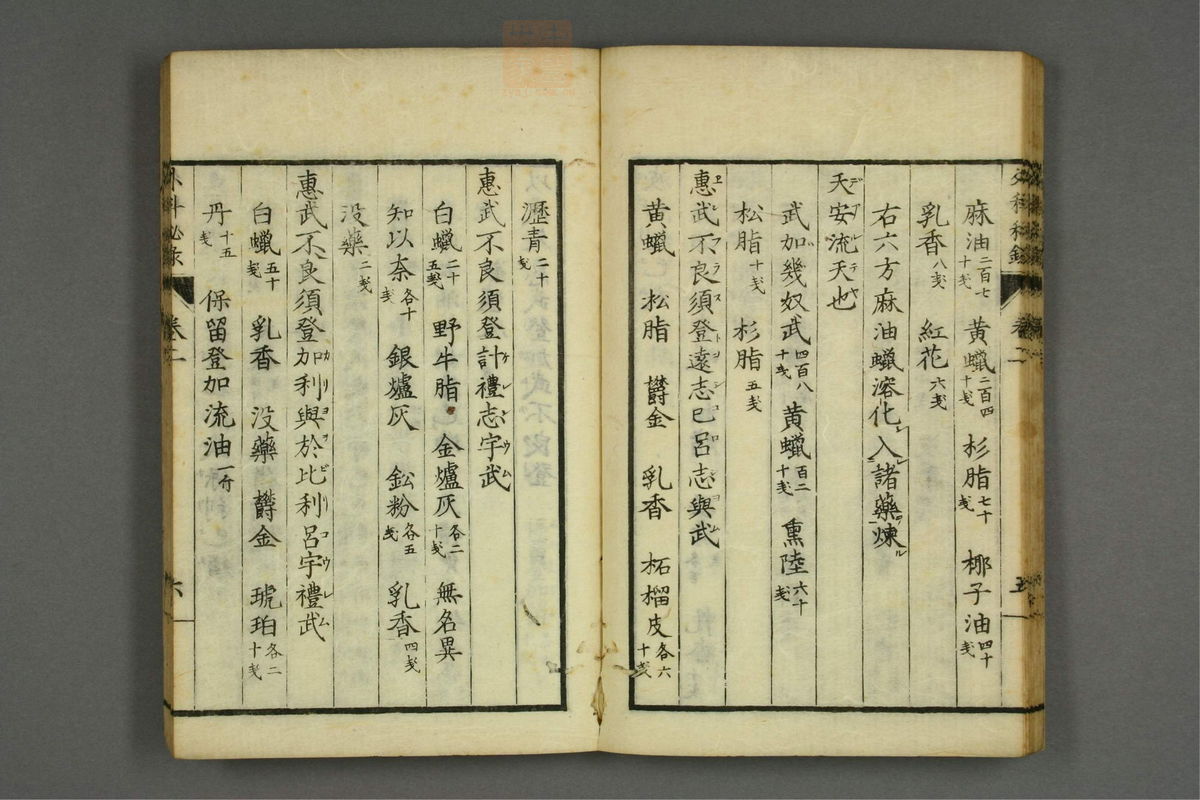 卷二
五
麻油二百七十戔 黄蠟二百四十戔 杉脂七十戔 椰子油四十戔
乳香八戔 紅花六戔
右六方麻油蠟溶化入諸藥煉
天安流天也
武加幾奴武四百八十戔 黄蠟百二十戔 熏陸六十戔
松脂十戔 杉脂五戔
惠武不良須登遠志巳呂志與武
黄蠟 松脂 欝金 乳香 柘榴皮各六十戔
瀝青二十戔
惠武不良須登計禮志宇武
白蠟二十五戔 野牛脂 金爐灰各二十戔 無名異
知以奈各十戔 銀爐灰 鈆粉各五戔 乳香四戔
没藥二戔
惠武不良須登加利與於比利呂宇禮武
白蠟五十戔 乳香 没藥 欝金 琥珀各二十戔
丹十五戔 保留登加流油一斤
卷二
六